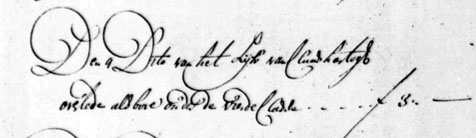 Den 9 Dito van het Lijk van Claas hartogh
overlede als bove onder de vierde Classe ..... f 3. —